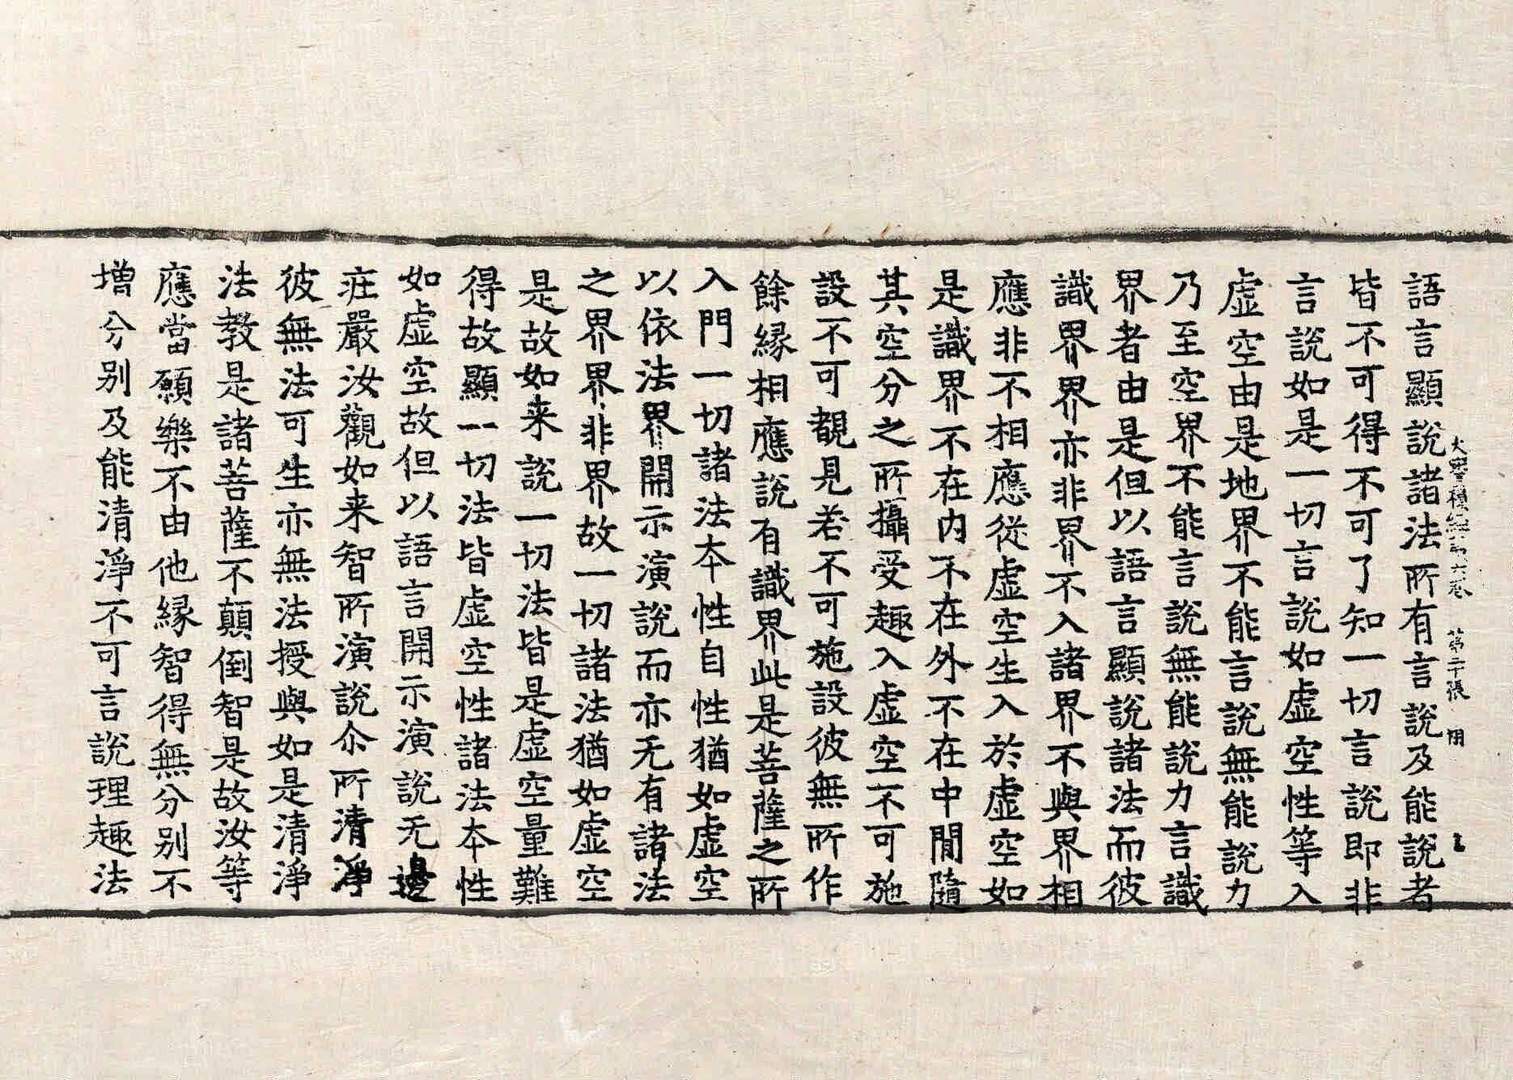 大寶積經第六卷 第二十張 用
語言顯說諸法所有言說及能說者
皆不可得不可了知一切言說即非
言說如是一切言說如虛空性等入
虛空由是地界不能言說無能說力
乃至空界不能言說無能說力言識
界者由是但以語言顯說諸法而彼
識界界亦非界不入諸界不與界相
應非不相應從虛空生入於虛空如
是識界不在内不在外不在中間隨
其空分之所攝受趣入虛空不可施
設不可覩見若不可施設彼無所作
餘縁相應說有識界此是菩薩之所
入門一切諸法夲性自性猶如虛空
以依法界開示演說而亦无有諸法
之界界非界故一切諸法猶如虛空
是故如来說一切法皆是虛空量難
得故顯一切法皆虛空性諸法夲性
如虛空故但以語言開示演說无邊
疘嚴汝觀如来智所演說尒所清淨
彼無法可生亦無法授與如是清淨
法教是諸菩薩不顛倒智是故汝等
應當願樂不由他縁智得無分別不
增分別及能清淨不可言說理趣法